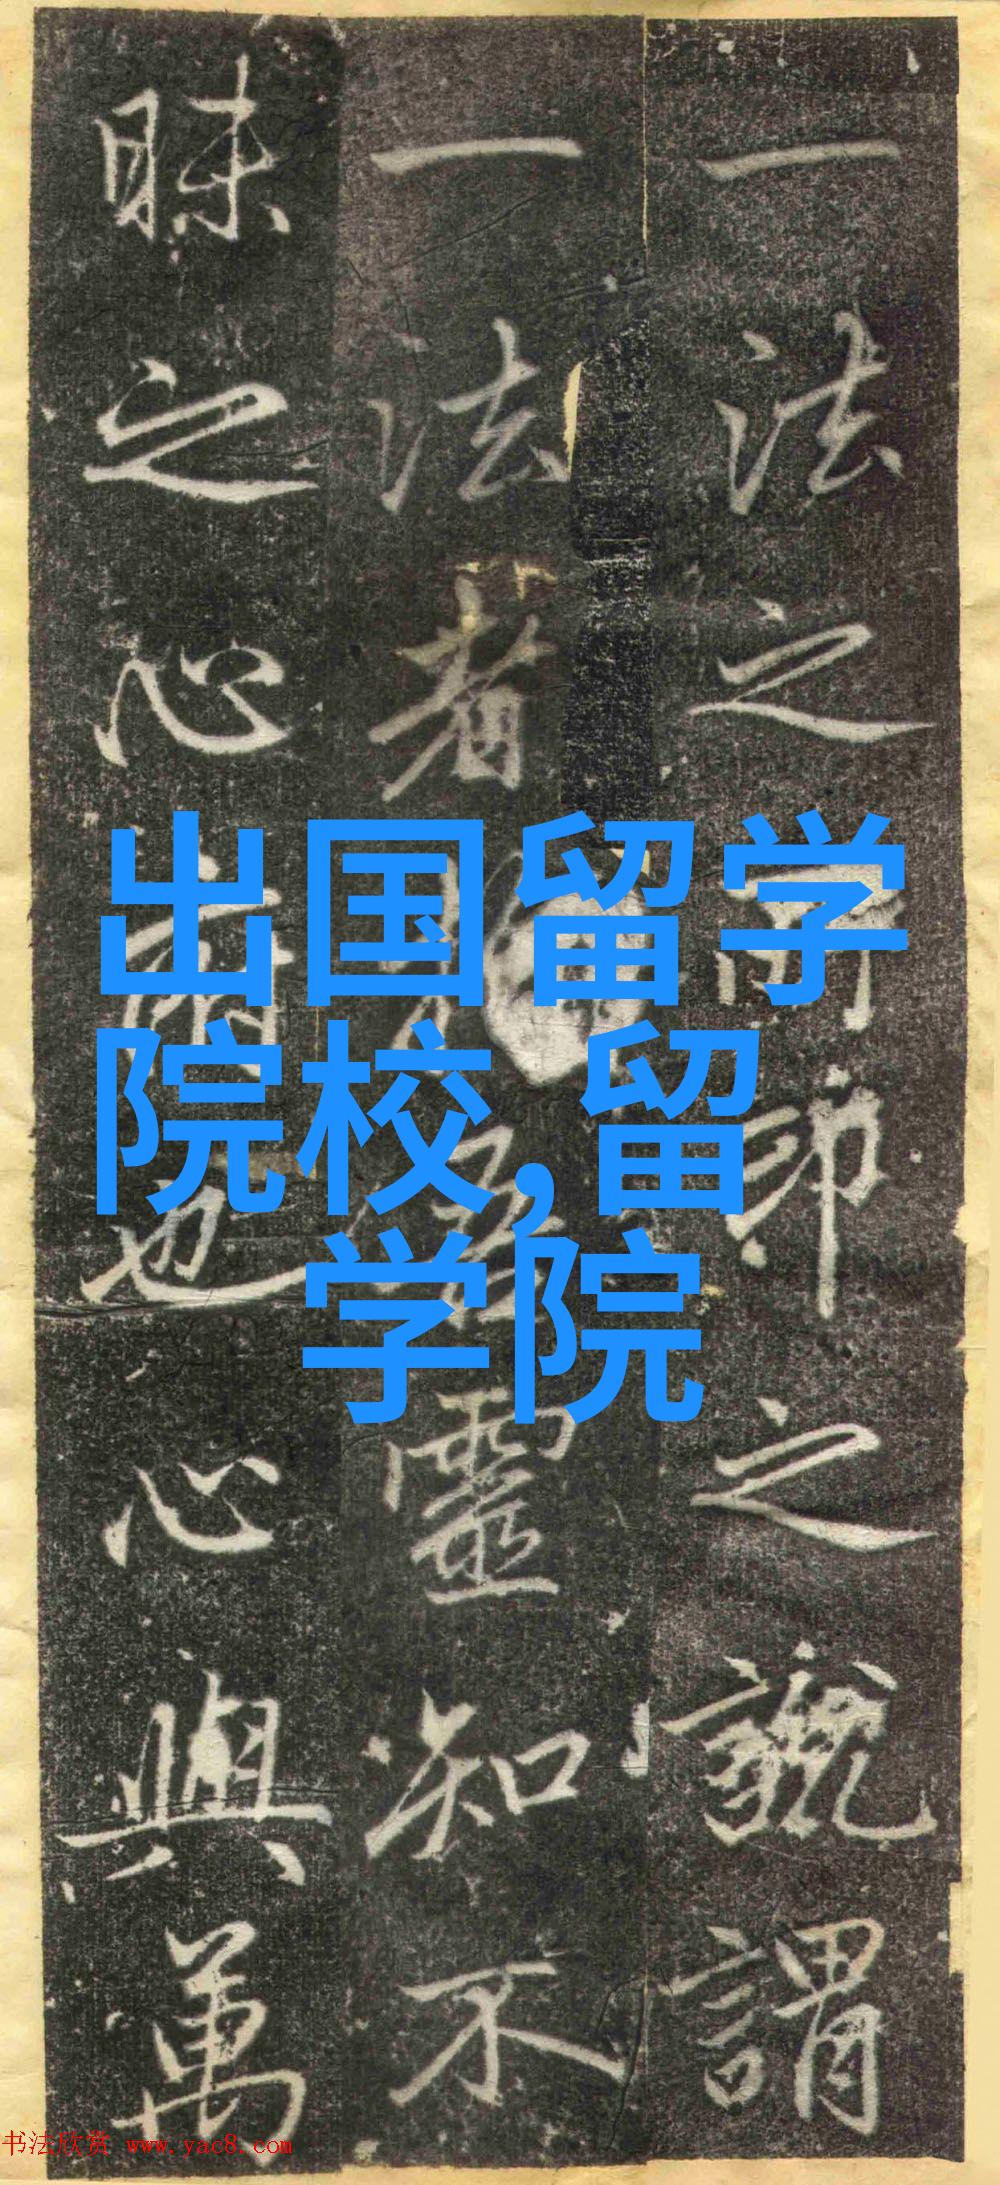 一法之印之號謂
一法者靈知不
昧之心也心與萬
出国留学
院校,留
学院
书法欣赏 www.yac8.com